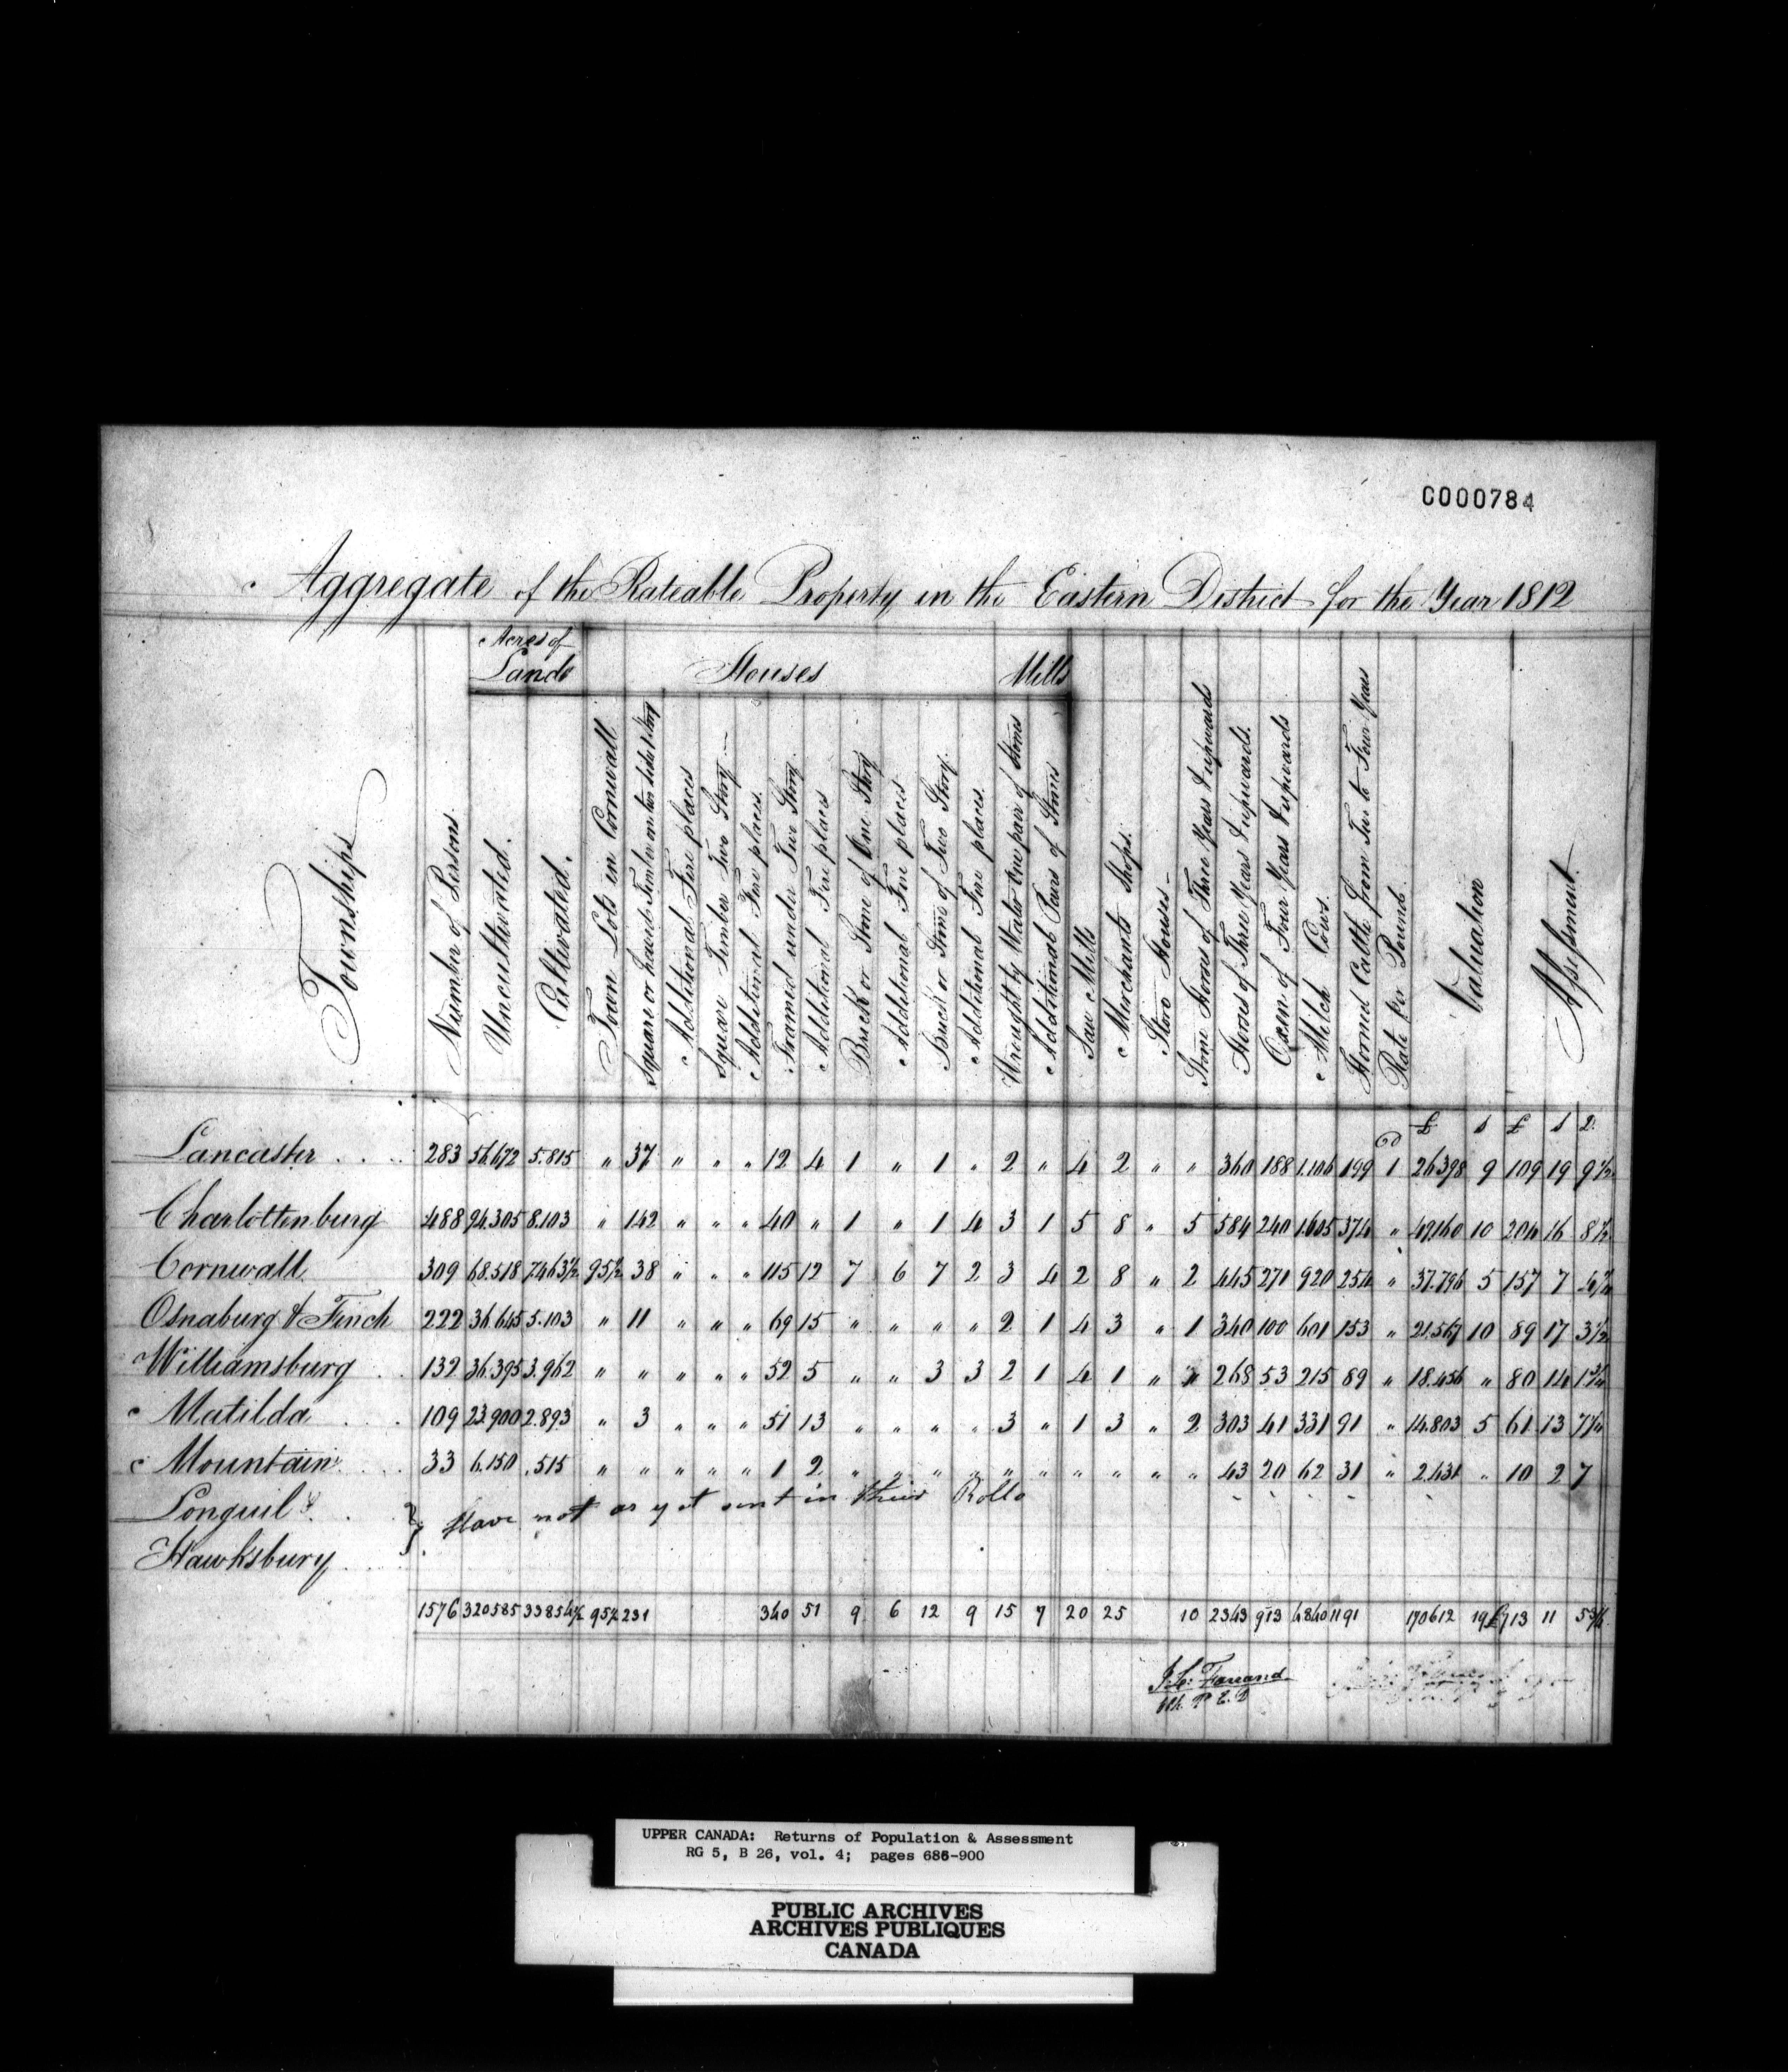 C000784
Aggregate of the Rateable Property in the Eastern District for the Year 1812
Acres of Lands
Houses
Mills
Townships
Number of Persons
Uncultivated.
Cultivated.
Town Lots in Cornwall
Square or hewed Timber on two sides 1 Story
Additional Fire places
Square Timber Two Story
Additional Fire places.
Framed under Two Story.
Additional Fire places
Brick or Stone of One Story
Additional Fire places
Brick or Stone of Two Story.
Additional Fire places.
Wrought by Water One pair of Stones
Additional Pairs of Stones
Saw Mills
Merchants Shops.
Store Houses
Stone Horses of Three Years & upwards
Horses of Three Years & upwards.
Oxen of Four Years & upwards
Milch Cows.
Horned Cattle from Two to Four Years
Rate per Pound.
Valuation
Assessment.
£ s £ s d
Lancaster . . . 283 56.672 5.815 " 37 " " " 12 4 1 " 1 " 2 " 4 2 " " 360 188 1.106 199 1 26398 9 109 19 9½
Charlottenburg 488 92.305 8.103 " 142 " " " 40 " 1 " 1 4 3 1 5 8 " 5 584 240 1.605 374 " 49.160 10 204 16 8½
Cornwall 309 68.518 7.463½ 95½ 38 " " " 115 12 7 6 7 2 3 4 2 8 " 2 445 271 920 254 " 37.796 5 157 7
Osnaburg & Finch 222 36.645 5.103 " 11 " " " 69 15 " " " " 2 1 4 3 " 1 340 100 601 153 " 21.567 10 89 17 3½
Williamsburg . . 132 36.395 3.962 " " " " " 52 5 " " 3 3 2 1 4 1 " " 268 53 215 89 " 18.456 " 80 14 1¾
Matilda . . . 109 23.900 2.893 " 3 " " " 51 13 " " " " 3 " 1 3 " 2 303 41 331 91 " 14.803 5 61 13 7¼
Mountain . . . 33 6.150 .515 " " " " " 1 2 " " " " " " " " " " 43 20 62 31 " 2.431 " 10 2 7
Longuil &
Hawksbury } Have not as yet sent in their Rolls
1576 320585 33854½ 95½ 231 340 51 9 6 12 9 15 7 20 25 10 2343 913 4840 1191 170612 19 £713 11 5¾
Farrand